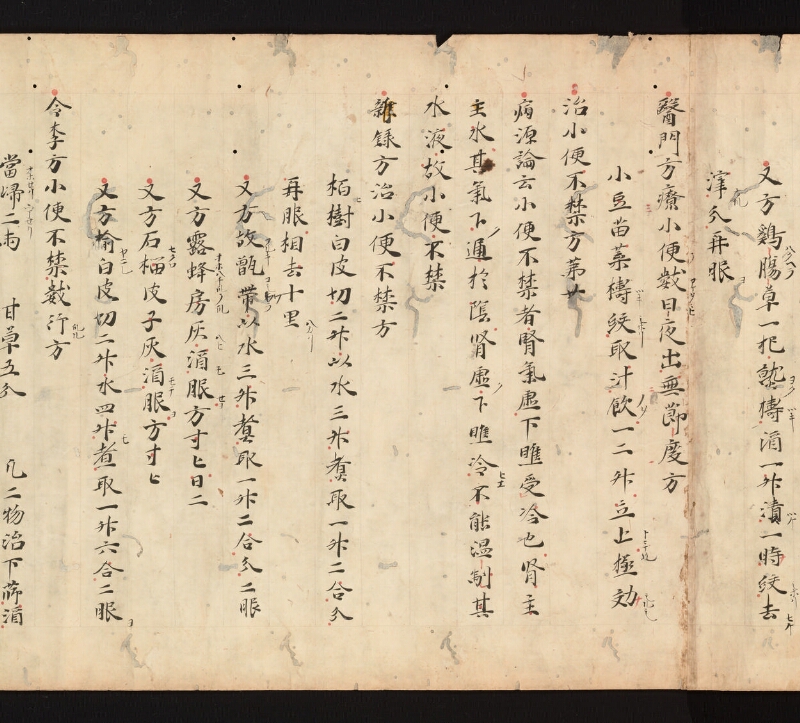 又方鷄腸草一把熟擣酒一升漬一時絞去
滓分再服
醫門方療小便數日夜出無節度方
小豆苗葉擣絞取汁飲一二升立止極効
治小便不禁方第廿
病源論云小便不禁者腎氣虛下瞧受冷也腎主
主水其氣下通於陰腎虛下瞧冷不能溫制其
水液故小便不禁
雜録方治小便不禁方
栢樹白皮切二升以水三升煑取一升二合分
再服相去十里
又方故甑帶以水三升煑取一升二合分二服
又方露蜂房灰酒服方寸匕日二
又方石榴皮子灰酒服方寸匕
又方榆白皮切二升水四升煑取一升六合二服
令李方小便不禁數行方
當歸二両 甘草五分 凡二物治下篩酒